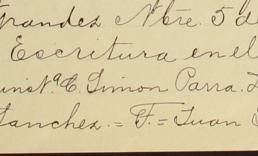 Grandez Nbre. 5 de
Escritura en el
C. Simon Parra.
Sanchez.= F.= Juan